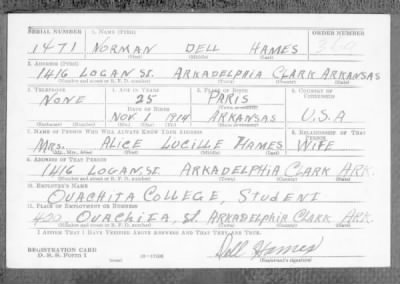 SERIAL NUMBER 1. NAME (Print) ORDER NUMBER
1471 NORMAN DELL HAMES
(First) (Middle) (Last)
2. ADDRESS (Print)
1416 LOGAN St. ARKADELPHIA CLARK ARKANSAS
(Number and street or R. F. D. number) (Town) (County) (State)
3. TELEPHONE 4. AGE IN YEARS 5. PLACE OF BIRTH 6. COUNTRY OF CITIZENSHIP
NONE 25 PARIS
DATE OF BIRTH
NOV 1 1914 ARKANSAS U.S.A
(Exchange) (Number) (Mo.) (Day) (Yr.) (State or country)
7. NAME OF PERSON WHO WILL ALWAYS KNOW YOUR ADDRESS 8. RELATIONSHIP OF THAT PERSON
MRS. ALICE LUCILLE HAMES WIFE
(Mr., Mrs., Miss) (First) (Middle) (Last)
9. ADDRESS OF THAT PERSON
1416 LOGAN St. ARKADELPHIA CLARK ARK.
(Number and street or R. F. D. number) (Town) (County) (State)
10. EMPLOYER'S NAME
OUACHITA COLLEGE, STUDENT
11. PLACE OF EMPLOYMENT OR BUSINESS
400 OUACHITA, St. ARKADELPHIA CLARK ARK.
(Number and street or R. F. D. number) (Town) (County) (State)
I AFFIRM THAT I HAVE VERIFIED ABOVE ANSWERS AND THAT THEY ARE TRUE.
REGISTRATION CARD
D. S. S. Form 1 16-17105 Dell Hames
(Registrant's signature)